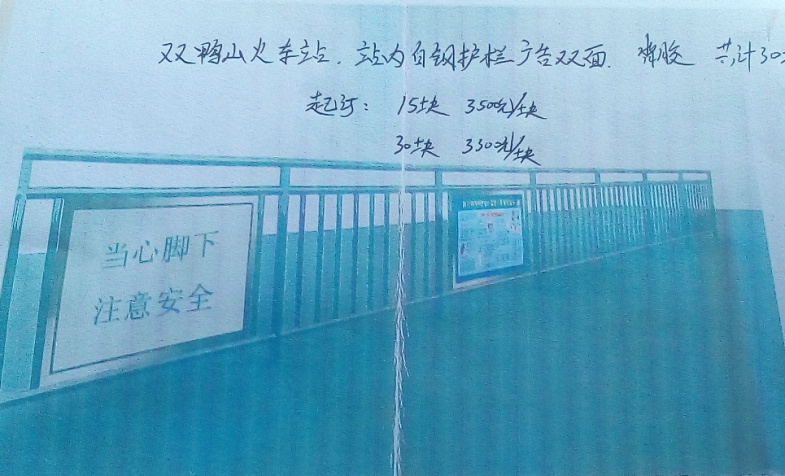 双鸭山火车站. 站内白钢护栏广告双面. 背胶 共计30
起订: 15块 3500元/块
30块 3300元/块
当心脚下
注意安全